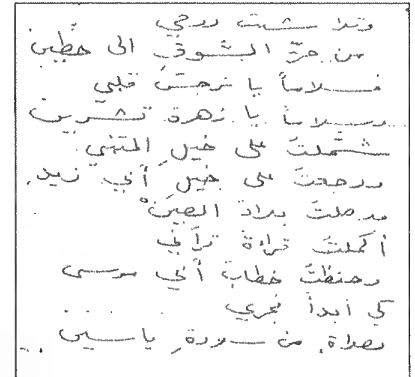 وتلا شت روحي
من حرّ الشوق الى حطّين
فسلاماً يا نرجس قلبي
وسلاماً يا زهرة تشرين
على خيل المتنبي
ورجعت على خيل أبي زيد
وصلت بلاد الصين
أكملت قراءة قرآني
وحفظت خطاب أبي موسى
كي أبدأ فجري
بصلاة من سورة ياسين ..